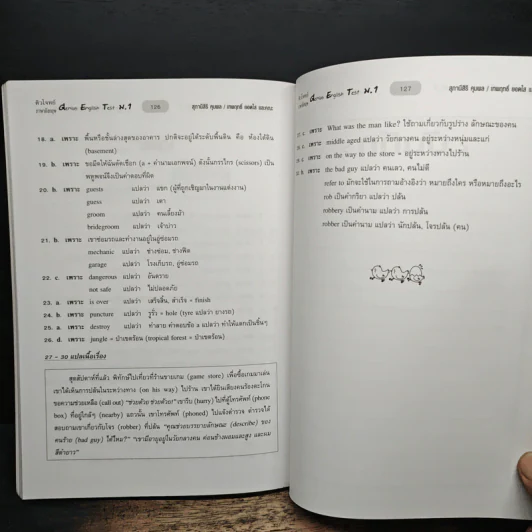 ติวโจทย์
ภาษาอังกฤษ Genius English Test ม.1 126 สุภานิสิริ คุมผล / เทพฤทธิ์ ยอดใส และคณะ
18. a. เพราะ พื้นหรือชั้นล่างสุดของอาคาร ปกติจะอยู่ใต้ระดับพื้นดิน คือ ห้องใต้ดิน
(basement)
19. b. เพราะ
พหูพจน์จึงเป็นคำตอบที่ผิด
20. b. เพราะ guests แปลว่า แขก (ผู้ที่ถูกเชิญมาในงานแต่งงาน)
guess แปลว่า เดา
groom แปลว่า คนเลี้ยงม้า
bridegroom แปลว่า เจ้าบ่าว
21. b. เพราะ เขาซ่อมรถและทำงานอยู่ในอู่ซ่อมรถ
mechanic แปลว่า ช่างซ่อม, ช่างฟิต
garage แปลว่า โรงเก็บรถ, อู่ซ่อมรถ
22. c. เพราะ dangerous แปลว่า อันตราย
not safe แปลว่า ไม่ปลอดภัย
23. a. เพราะ is over แปลว่า เสร็จสิ้น, สำเร็จ = finish
24. b. เพราะ puncture แปลว่า รูรั่ว = hole (tyre แปลว่า ยางรถ)
25. a. เพราะ destroy แปลว่า ทำลาย คำตอบข้อ a แปลว่า ทำให้แตกเป็นชิ้นๆ
26. d. เพราะ jungle = ป่าเขตร้อน (tropical forest = ป่าเขตร้อน)
27 - 30 แปลเนื้อเรื่อง
สุดสัปดาห์ที่แล้ว พิทักษ์ไปเที่ยวที่ร้านขายเกม (game store) เพื่อซื้อเกมมาเล่น
เขาได้เห็นการปล้นในระหว่างทาง (on his way) ไปร้าน เขาได้ยินเสียงคนร้องตะโกน
ขอความช่วยเหลือ (call out) "ช่วยด้วย! ช่วยด้วย!" เขารีบ (hurry) ไปที่ตู้โทรศัพท์ (phone
box) ที่อยู่ใกล้ๆ (nearby) แถวนั้น เขาโทรศัพท์ (phoned) ไปแจ้งตำรวจ ตำรวจได้
สอบถามเขาเกี่ยวกับโจร (robber) ที่ปล้น "คุณช่วยบรรยายลักษณะ (describe) ของ
คนร้าย (bad guy) ได้ไหม?" "เขามีอายุอยู่ในวัยกลางคน ค่อนข้างผอมและสูง และผม
สีดำยาว"
Genius English Test ม.1 127 สุภานิสิริ คุมผล / เทพฤทธิ์ ยอดใส และคณะ
เพราะ What was the man like? ใช้ถามเกี่ยวกับรูปร่าง ลักษณะของคน
เพราะ middle aged แปลว่า วัยกลางคน อยู่ระหว่างหนุ่มและแก่
เพราะ on the way to the store = อยู่ระหว่างทางไปร้าน
เพราะ the bad guy แปลว่า คนเลว, คนไม่ดี
refer to มักจะใช้ในการถามอ้างอิงว่า หมายถึงใคร หรือหมายถึงอะไร
rob เป็นคำกริยา แปลว่า ปล้น
robbery เป็นคำนาม แปลว่า การปล้น
robber เป็นคำนาม แปลว่า นักปล้น, โจรปล้น (คน)